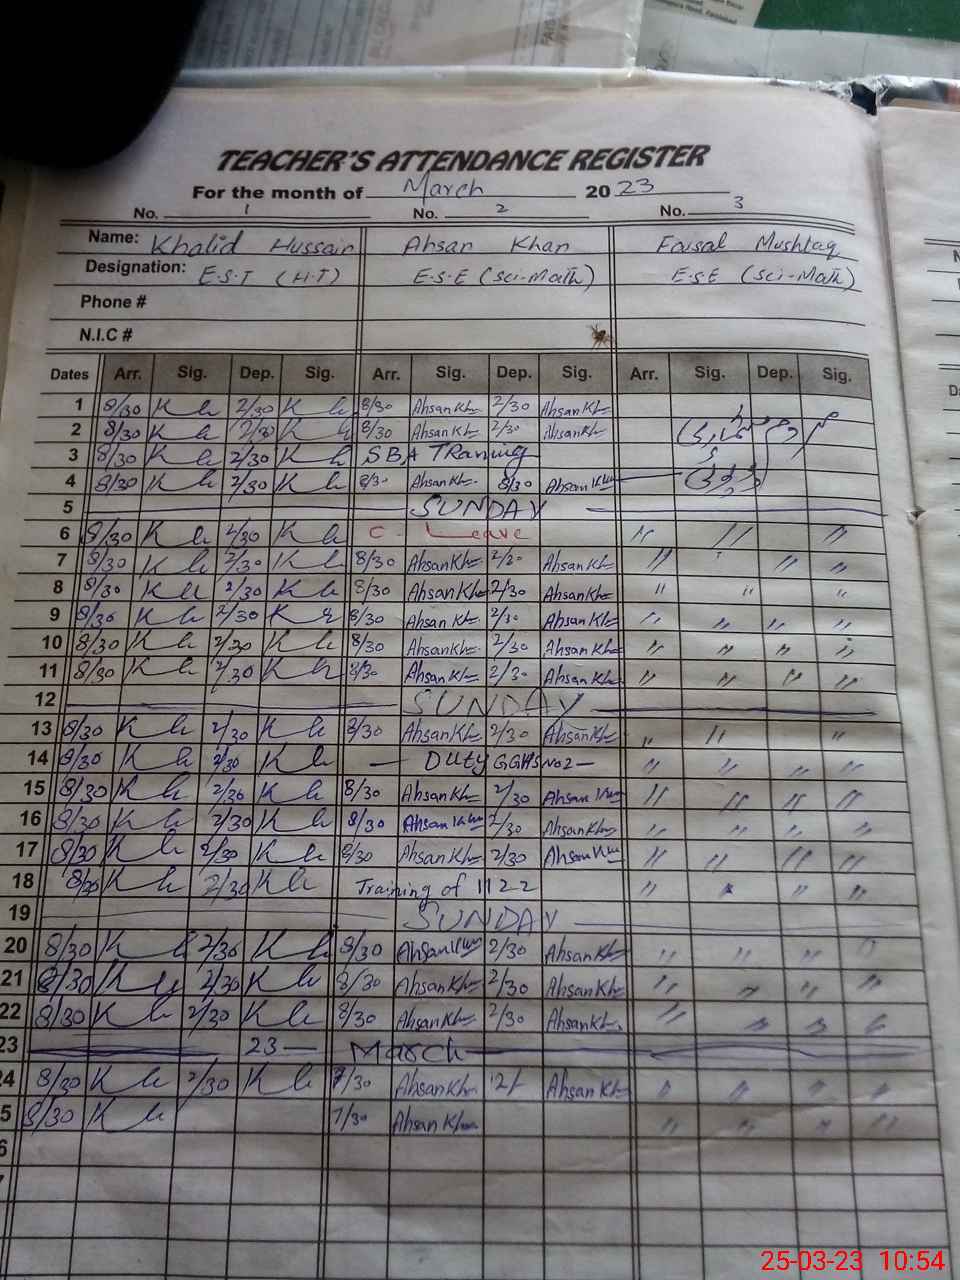 TEACHER'S ATTENDANCE REGISTER
For the month of March 20 23
No. 1 No. 2 No. 3
Name: Khalid Hussain Ahsan Khan Faisal Mushtaq
Designation: E.S.T (H.T) E.S.E (Sci-Math) E.S.E (Sci-Math)
Phone #
N.I.C #
Dates Arr. Sig. Dep. Sig. Arr. Sig. Dep. Sig. Arr. Sig. Dep. Sig.
1 8/30 K h 2/30 K h 8/30 AhsanKh 2/30 AhsanKh
2 8/30 K h 2/30 K h 8/30 AhsanKh 2/30 AhsanKh
3 8/30 K h 2/30 K h SBA TRaning
4 8/30 K h 2/30 K h 8/30 AhsanKh 8/30 AhsanKh
5 SUNDAY
6 8/30 K h 2/30 K h C. Leave " " "
7 8/30 K h 2/30 K h 8/30 AhsanKh 2/30 AhsanKh " " " "
8 8/30 K h 2/30 K h 8/30 AhsanKh 2/30 AhsanKh " " "
9 8/30 K h 2/30 K h 8/30 AhsanKh 2/30 AhsanKh " " " "
10 8/30 K h 2/30 K h 8/30 AhsanKh 2/30 AhsanKh " " " "
11 8/30 K h 2/30 K h 8/30 AhsanKh 2/30 AhsanKh " " " "
12 SUNDAY
13 8/30 K h 2/30 K h 8/30 AhsanKh 2/30 AhsanKh " " "
14 8/30 K h 2/30 K h — Duty GGHS No2 — " " " "
15 8/30 K h 2/30 K h 8/30 AhsanKh 2/30 AhsanKh " " " "
16 8/30 K h 2/30 K h 8/30 AhsanKh 2/30 AhsanKh " " " "
17 8/30 K h 2/30 K h 8/30 AhsanKh 2/30 AhsanKh " " " "
18 8/30 K h 2/30 K h Training of 1122 " " " "
19 SUNDAY
20 8/30 K h 2/30 K h 8/30 AhsanKh 2/30 AhsanKh " " " "
21 8/30 K h 2/30 K h 8/30 AhsanKh 2/30 AhsanKh " " " "
22 8/30 K h 2/30 K h 8/30 AhsanKh 2/30 AhsanKh " " "
23 23 — March
24 8/30 K h 2/30 K h 7/30 AhsanKh AhsanKh " " " "
5 8/30 K h 7/30 AhsanKh " " " "
6
7
25-03-23 10:54